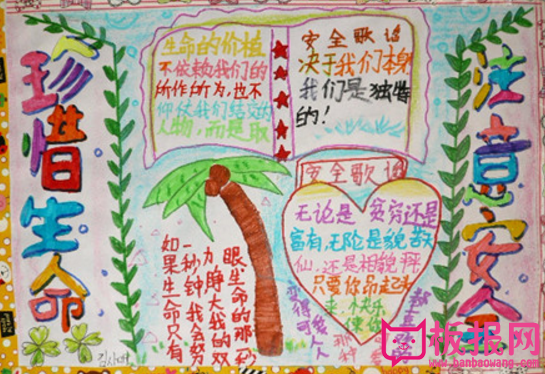 珍惜生命
生命的价值
不依赖我们的
所作所为,也不
仰仗我们结交的
人物,而是取
安全歌谣
决于我们本身
我们是独特
的!
注意安全
安全歌谣
无论是贫穷还是
富有,无论是貌若天
仙,还是相貌平
只要你昂起头
来,快乐
如果生命只有
一秒钟我会努
力睁大我的双
眼生命的那
变得可
人人
那种
板报网
www.banbaowang.com